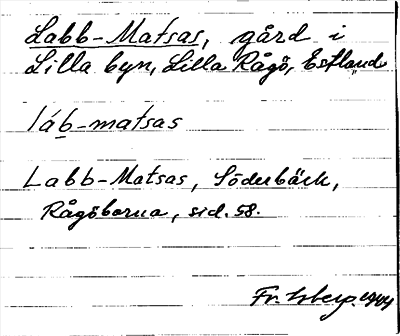 Labb-Matsas, gård i
Lilla byn, Lilla Rågö, Estland
láb-matsas
Labb-Matsas, Söderbäck,
Rågöborna, sid. 58.
Fr.